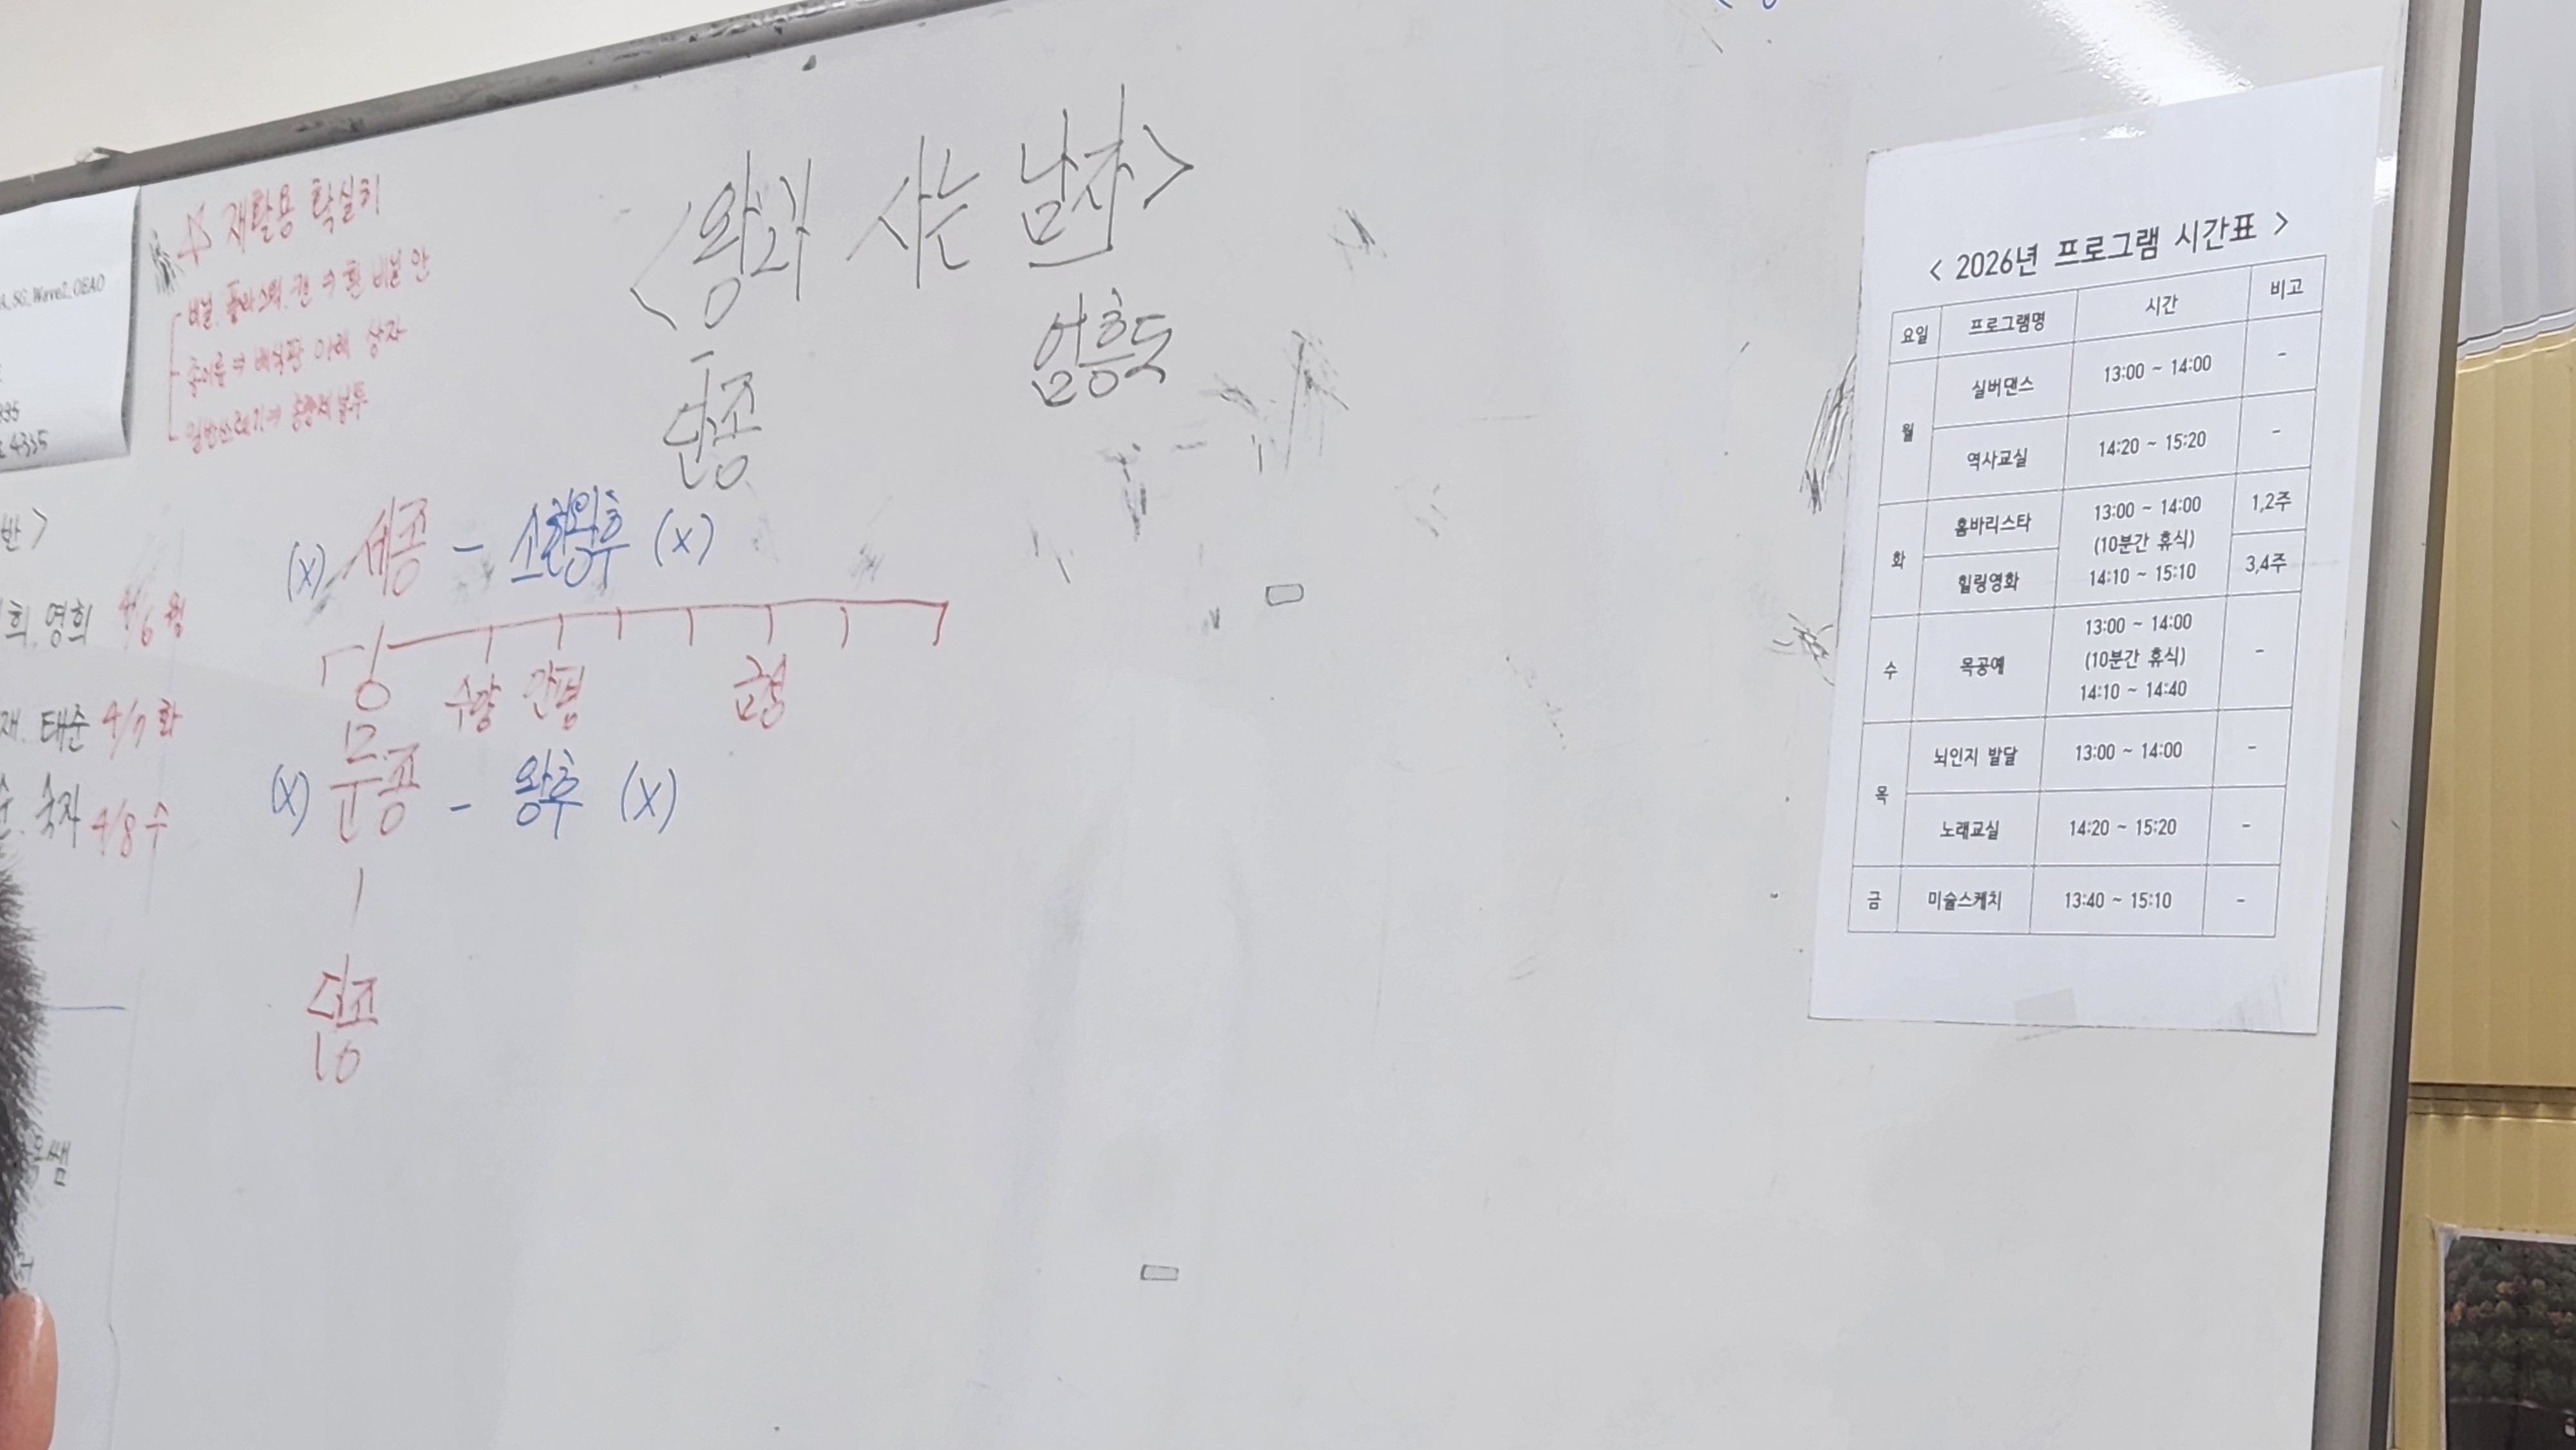 A_SG_Wave2_OEAD
4335
☆ 재활용 확실히
비닐. 플라스틱. 캔 ⇒ 흰 비닐 안
종이류 ⇒ 배식판 아래 상자
일반쓰레기 ⇒ 종량제 봉투
<왕과 사는 남자>
단종
엄흥도
반>
희. 영희 4/6 월
재. 태순 4/7 화
숙자 4/8 수
쌤
(x) 세종 - 소헌왕후 (x)
장
수양 안평 금성
(x) 문종 - 왕후 (x)
단종
< 2026년 프로그램 시간표 >
요일 프로그램명 시간 비고
월 실버댄스 13:00 ~ 14:00 -
역사교실 14:20 ~ 15:20 -
화 홈바리스타 13:00 ~ 14:00 1,2주
(10분간 휴식)
힐링영화 14:10 ~ 15:10 3,4주
수 목공예 13:00 ~ 14:00 -
(10분간 휴식)
14:10 ~ 14:40
목 뇌인지 발달 13:00 ~ 14:00 -
노래교실 14:20 ~ 15:20 -
금 미술스케치 13:40 ~ 15:10 -